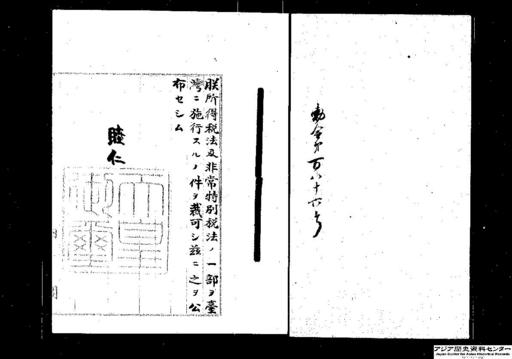 勅令第百八十六号
朕所得税法及非常特別税法ノ一部ヲ臺
灣ニ施行スルノ件ヲ裁可シ茲ニ之ヲ公
布セシム
睦仁
天皇御璽
アジア歴史資料センター
Japan Center for Asian Historical Records